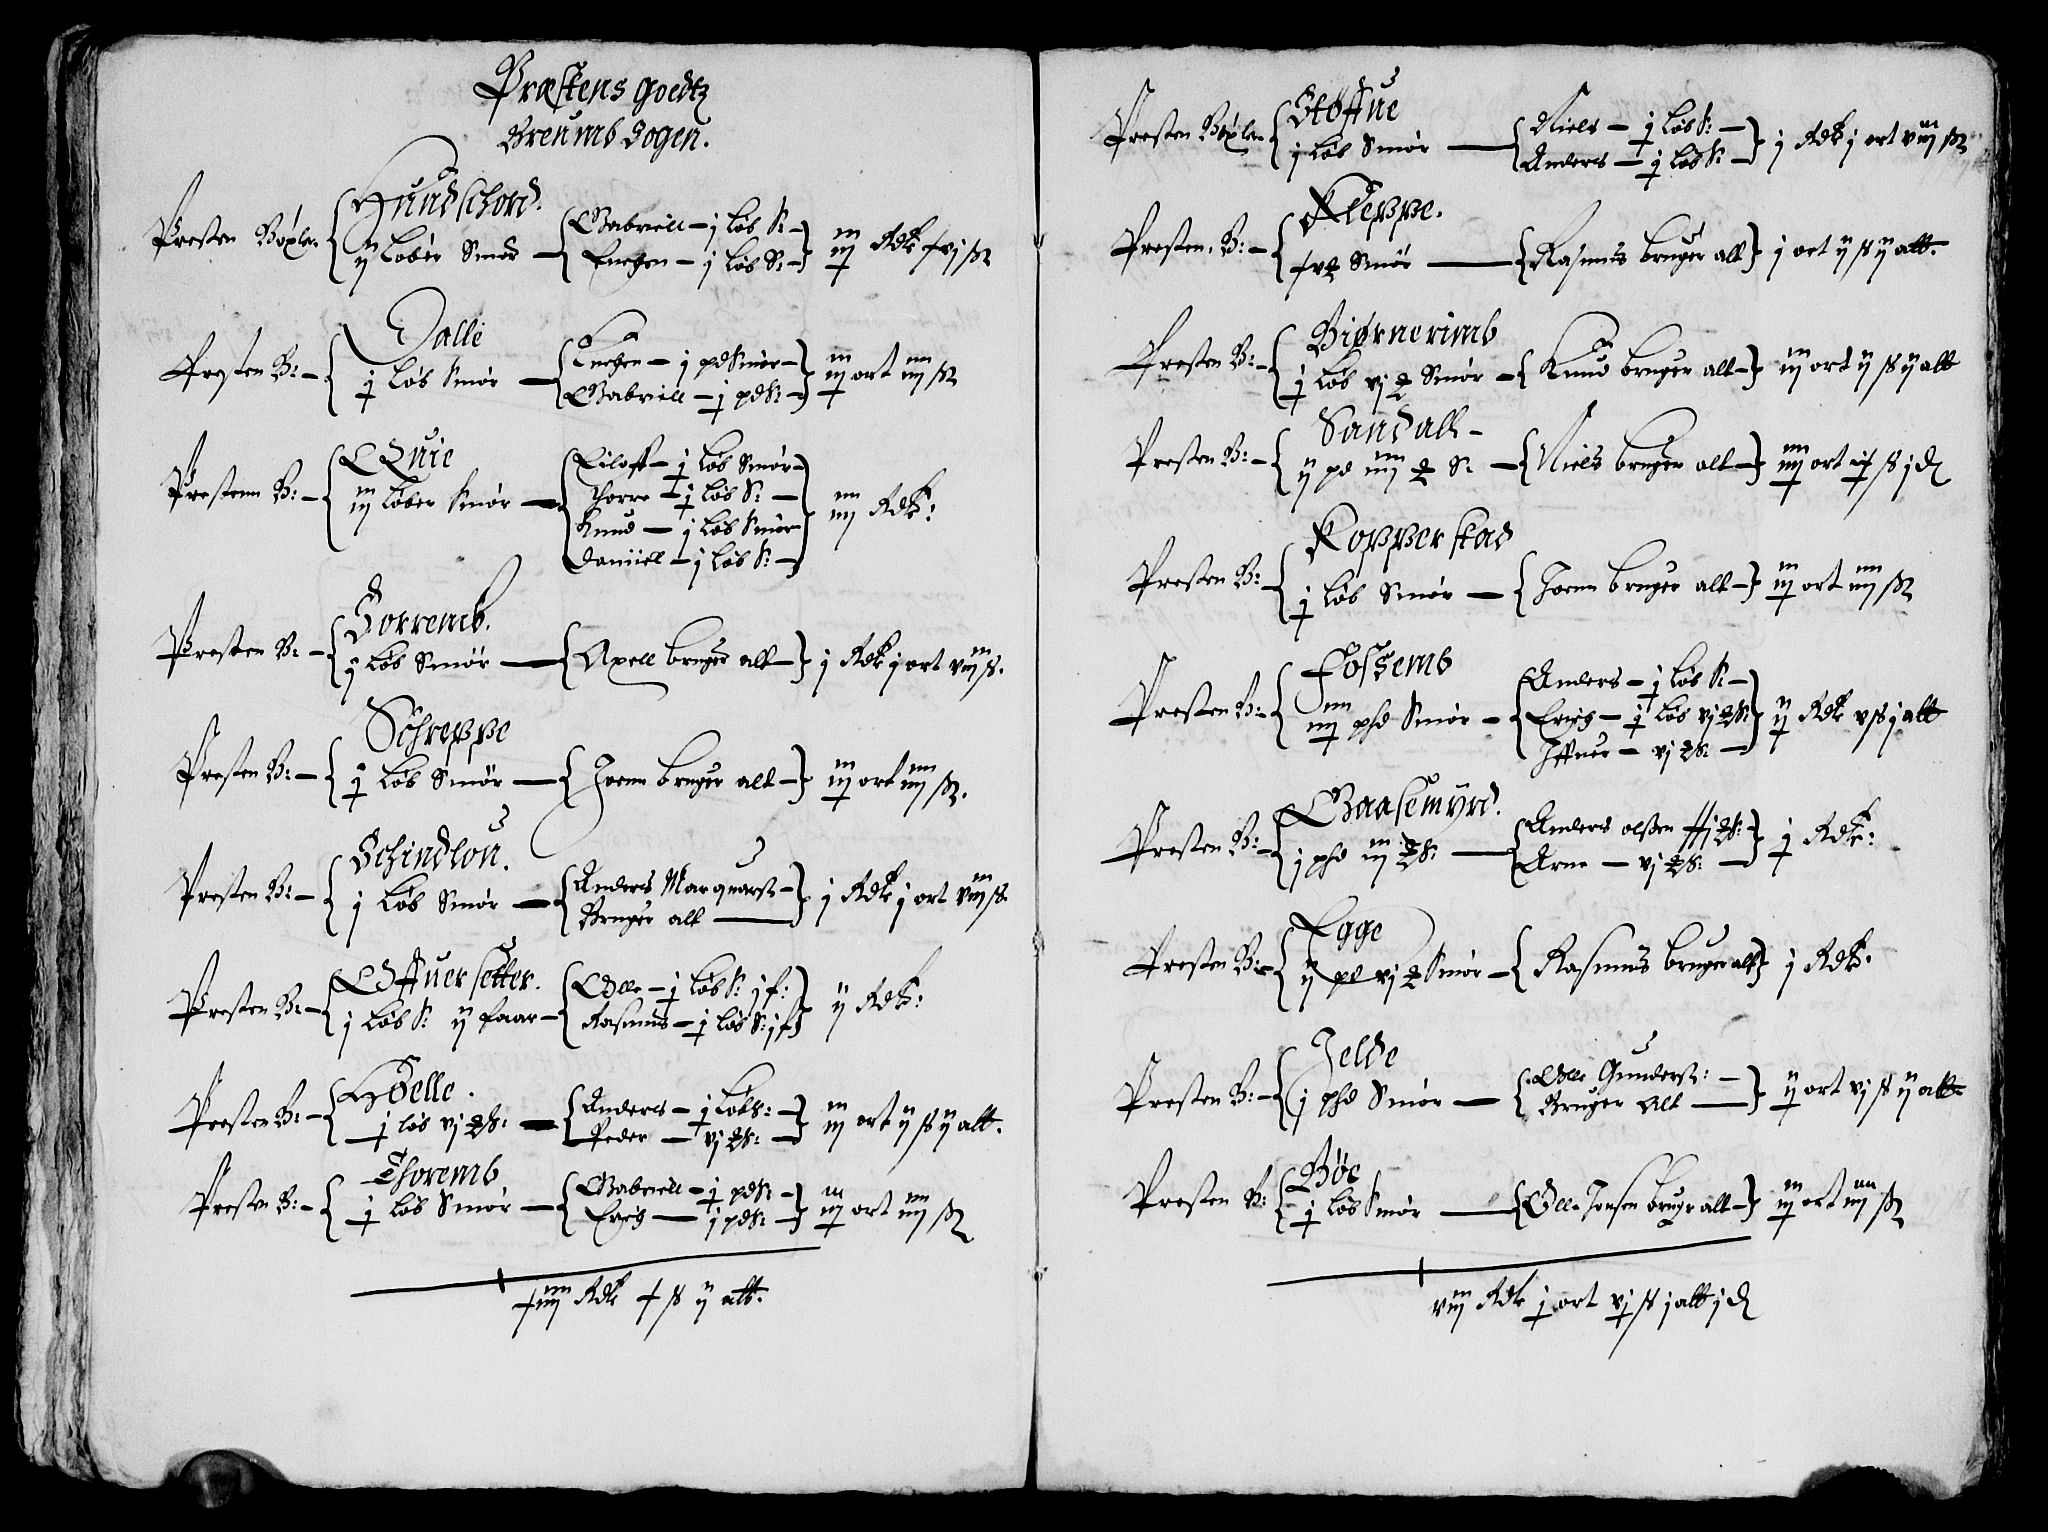 Præstens goedtz
Breumb Sogen.
Presten Böxler
Hundschord.
ij Løber Smør
Gabriell – j løb S:
Enchen – j løb S:
Rdr xvj sk
Presten B:
Dalle
j løb Smør
Enchen – j pd Smør
Gabriell – j pd S:
iij ort iiij sk
Prestenn B:
Quie
iij Løber Smør
Eiloff – j løb Smør
Thorre – j løb S:
Knud – j løb Smør
Daniiell – j løb S:
iiij Rdr:
Presten B:
Sorremb.
j løb Smør
Axell bruger alt
j Rdr j ort viij s.
Presten B:
Schreppe
j løb Smör
Joenn bruger alt
iij ort iiij sk.
Presten B:
Schindlou.
j Løb Smör
Anders Marquarss
Bruger alt
j Rdr j ort viij s.
Presten B:
Offuersetter.
j løb S: ij faar
Olle – j Løb S: j f:
Rasmus – j løb S: j f
ij Rdr:
Presten B:
Høelle.
j løb vj S:
Anders – j løb S:
Peder – vj S:
iij ort ij s ij alb.
Presten B:
Thoremb
j løb Smör
Gabriell – j pd S:
Erich – j pd S:
iij ort iiij sk
xiiij Rdr x s ij alb.
Presten Böxler
Støffue
j løb Smør
Niels – j løb S:
Anders – j løb S:
j Rdr j ort viij sk
Presten. B:
Kleppe.
Smör
Rasmus bruger alt
j ort ij s ij alb.
Presten B:
Biørnerimb
j løb vj Smør
Knud bruger alt
iij ort ij s ij alb
Presten B:
Sandall
ij pd iiij S:
Niels bruger alt
iiij ort s j d
Presten B:
Kopperstad
j løb Smör
Joenn bruger alt
iij ort iiij sk
Presten B:
Fossemb
iiij phd Smør
Anders – j løb S:
Erich – j løb vj S:
Jffuer – vj S:
ij Rdr v s j alb
Presten B:
Gaasemyrd.
j phd iij S:
Anders olssen
Arne – vj S:
j Rdr:
Presten B:
Egge
ij pd vj Smør
Rasmus bruger alt
j Rdr.
Presten B:
Jelde
j phd Smør
Olle Gunderss:
Bruger alt
ij ort vj s ij alb
Presten B:
Böe
j løb Smør
Olle Jensen brugr alt
iij ort iiij sk
viij Rdr j ort vj s j alb j d